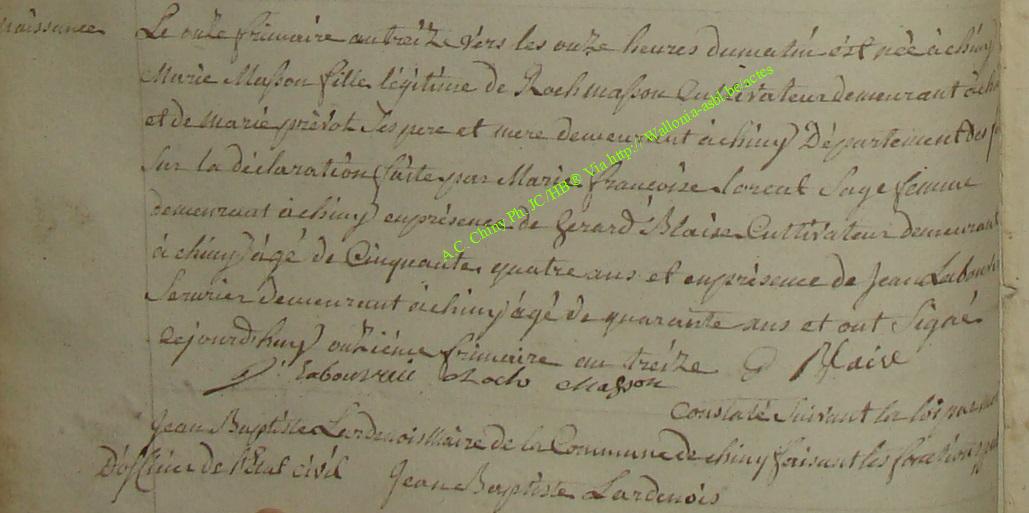 naissance
Le onze frimaire an treize vers les onze heures dumatin est née à chiny
Marie Masson fille légitime de Roch masson Cultivateur demeurant à
et de marie prévot ses pere et mere demeurant à chiny Département des
Sur la déclaration faite par Marie françoise lorent Sage femme
demeurant à chiny en présence de Gérard Blaise Cultivateur demeurant
à chiny âgé de Cinquante quatre ans et en présence de Jean Labouverie
Serurier demeurant à chiny âgé de quarante ans et ont Signé
cejourd'huy onzième frimaire an treize G Blaise
J labouverie Roche Masson
Constaté Suivant la loi par moi
Jean Baptiste Lardenois Maire de la Commune de chiny faisant les fonctions
D'officier de l'Etat civil Jean Baptiste Lardenois
A.C. Chiny Ph. JC/HB® Via http://Wallonia-asbl.be/actes